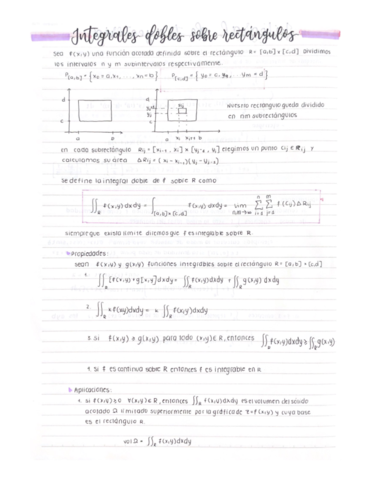 Integrales dobles sobre rectángulos
Sea f(x,y) una función acotada definida sobre el rectángulo R = [a,b] x [c,d] dividimos
los intervalos n y m subintervalos respectivamente.
P[a,b] = { x₀ = a, x₁, ..., xn = b } P[c,d] = { y₀ = c, y₁, ... ym = d }
d
c
a b
d
c
a b
nuestro rectángulo queda dividido
en nm subrectángulos
en cada subrectángulo Rij = [xi-1, xi] x [yj-1, yj] elegimos un punto Cij ∈ Rij y
calculamos su área Δ Rij = (xi - xi-1)(yj - yj-1)
Se define la integral doble de f sobre R como
∬R f(x,y) dxdy = ∫[a,b]x[c,d] f(x,y) dxdy = lim n,m→∞ Σ Σ f(cij) Δ Rij
siempre que exista límite diremos que f es integrable sobre R.
Propiedades:
Sean f(x,y) y g(x,y) funciones integrables sobre el rectángulo R = [a,b] x [c,d]
1. ∬R [f(x,y) + g(x,y)] dxdy = ∬R f(x,y) dxdy + ∬R g(x,y) dxdy
2. ∬R f(x,y) dxdy = ∬R f(x,y) dxdy
3. si f(x,y) ≥ g(x,y) para todo (x,y) ∈ R, entonces ∬R f(x,y) dxdy ≥ ∬R g(x,y)
4. si f es continua sobre R entonces f es integrable en R.
Aplicaciones:
1. si f(x,y) ≥ 0 ∀(x,y) ∈ R, entonces ∬R f(x,y) dxdy es el volumen del sólido
acotado Ω limitado superiormente por la gráfica de z = f(x,y) y cuya base
es el rectángulo R.
vol Ω = ∬R f(x,y) dxdy